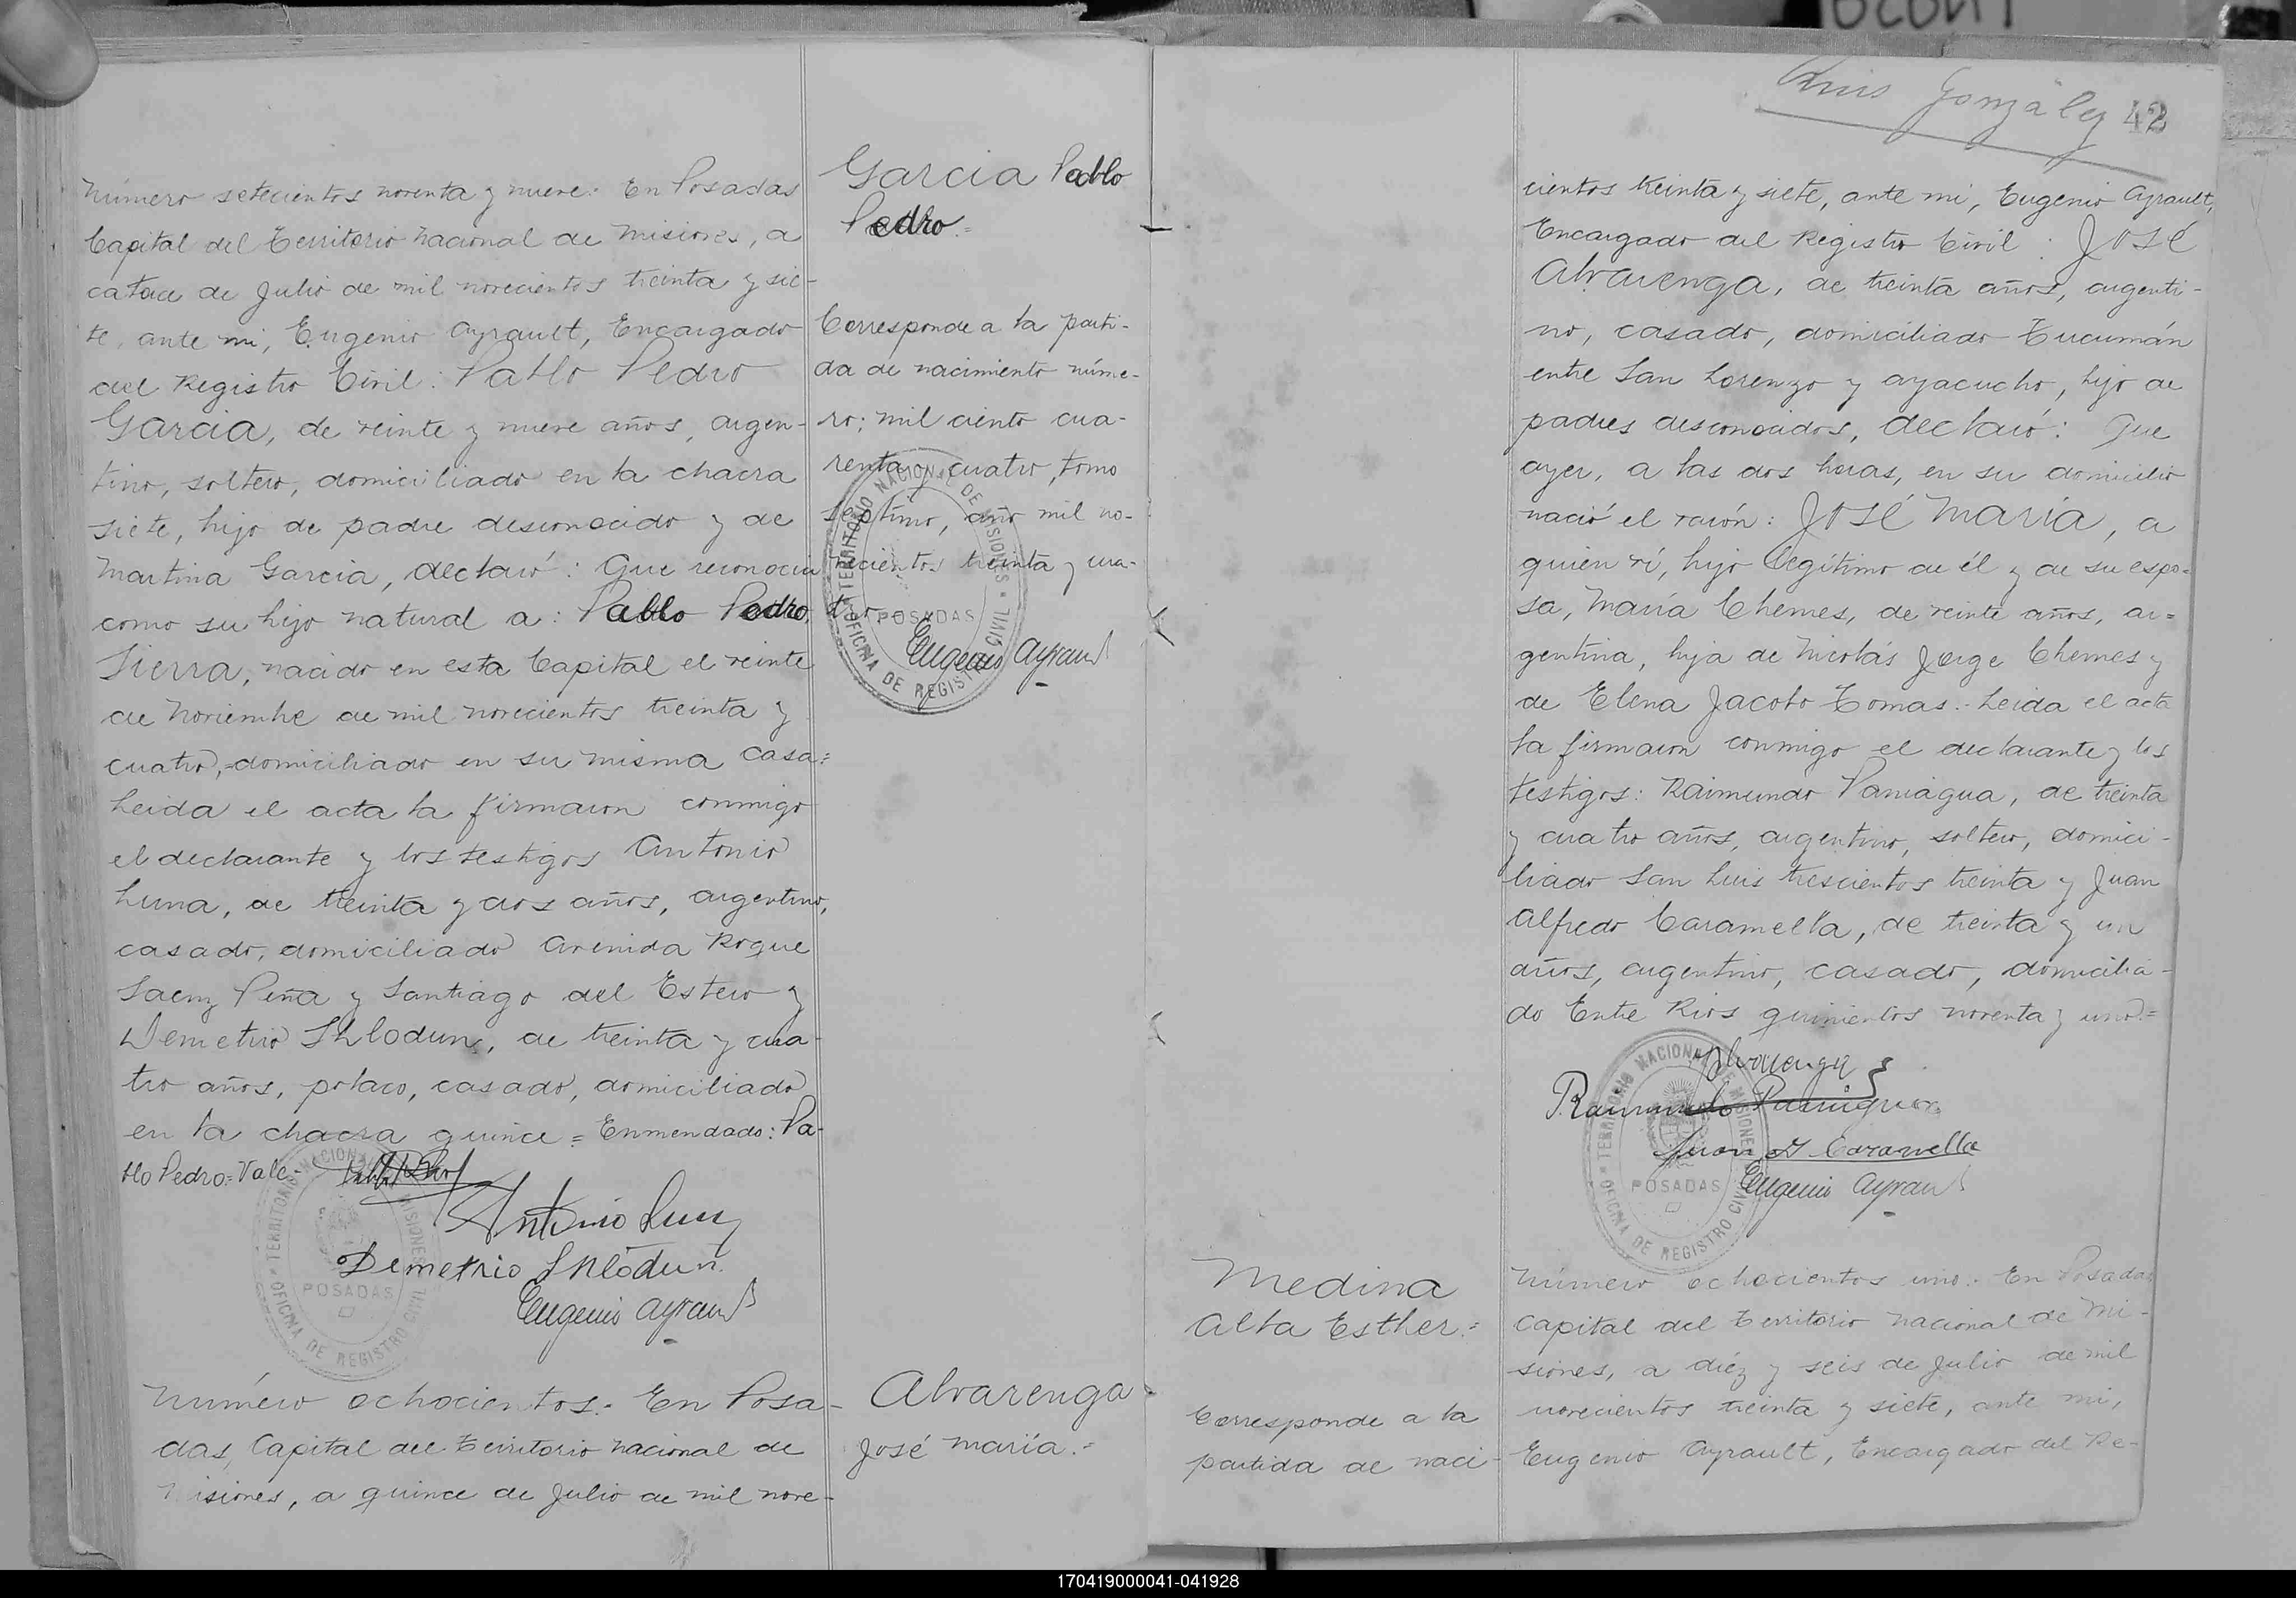 Número setecientos noventa y nueve: En Posadas
Capital del Territorio Nacional de Misiones, a
catorce de Julio de mil novecientos treinta y sie-
te, ante mi, Eugenio Ayrault, Encargado
del Registro Civil: Pablo Pedro
Garcia, de veinte y nueve años, argen-
tino, soltero, domiciliado en la chacra
siete, hijo de padre desconocido y de
Martina Garcia, declaró: Que reconocia
como su hijo natural a: Pablo Pedro
Sierra, nacido en esta Capital el veinte
de Noviembre de mil novecientos treinta y
cuatro, domiciliado en su misma casa=
Leida el acta la firmaron conmigo
el declarante y los testigos Antonio
Luna, de treinta y dos años, argentino,
casado, domiciliado Avenida Roque
Saenz Peña y Santiago del Estero y
Demetrio Shlodun, de treinta y cua-
tro años, polaco, casado, domiciliado
en la chacra quince = Enmendado: Pa-
blo Pedro = Vale-
Antonio Luna
Demetrio Shlodun
Eugenio Ayrault
TERRITORIO NACIONAL DE MISIONES
POSADAS
OFICINA DE REGISTRO CIVIL
Número ochocientos.- En Posa-
das, Capital del Territorio Nacional de
Misiones, a quince de Julio de mil nove-
Garcia Pablo
Pedro.=
Corresponde a la parti-
da de nacimiento núme-
ro; mil ciento cua-
renta y cuatro, tomo
séptimo, año mil no-
vecientos treinta y cua-
tro
Eugenio Ayrault
TERRITORIO NACIONAL DE MISIONES
POSADAS
OFICINA DE REGISTRO CIVIL
Alvarenga
José María.=
Luis González
42
cientos treinta y siete, ante mi, Eugenio Ayrault,
Encargado del Registro Civil: José
Alvarenga, de treinta años, argenti-
no, casado, domiciliado Tucumán
entre San Lorenzo y Ayacucho, hijo de
padres desconocidos, declaró: Que
ayer, a las dos horas, en su domicilio
nació el varón: José María, a
quien ví, hijo legítimo de él y de su espo-
sa, María Chemes, de veinte años, ar=
gentina, hija de Nicolás Jorge Chemes y
de Elena Jacobo Tomas.- Leida el acta
la firmaron conmigo el declarante y los
testigos: Raimundo Paniagua, de treinta
y cuatro años, argentino, soltero, domici-
liado San Luis trescientos treinta y Juan
Alfredo Caramella, de treinta y un
años, argentino, casado, domicilia-
do Entre Rios quinientos noventa y uno.=
Alvarenga
Raimundo Paniagua
Juan A Caramella
Eugenio Ayrault
TERRITORIO NACIONAL DE MISIONES
POSADAS
OFICINA DE REGISTRO CIVIL
Medina
Alba Esther.=
Corresponde a la
partida de naci-
Número ochocientos uno.- En Posadas
Capital del Territorio Nacional de Mi-
siones, a diéz y seis de Julio de mil
novecientos treinta y siete, ante mi,
Eugenio Ayrault, Encargado del Re-
170419000041-041928